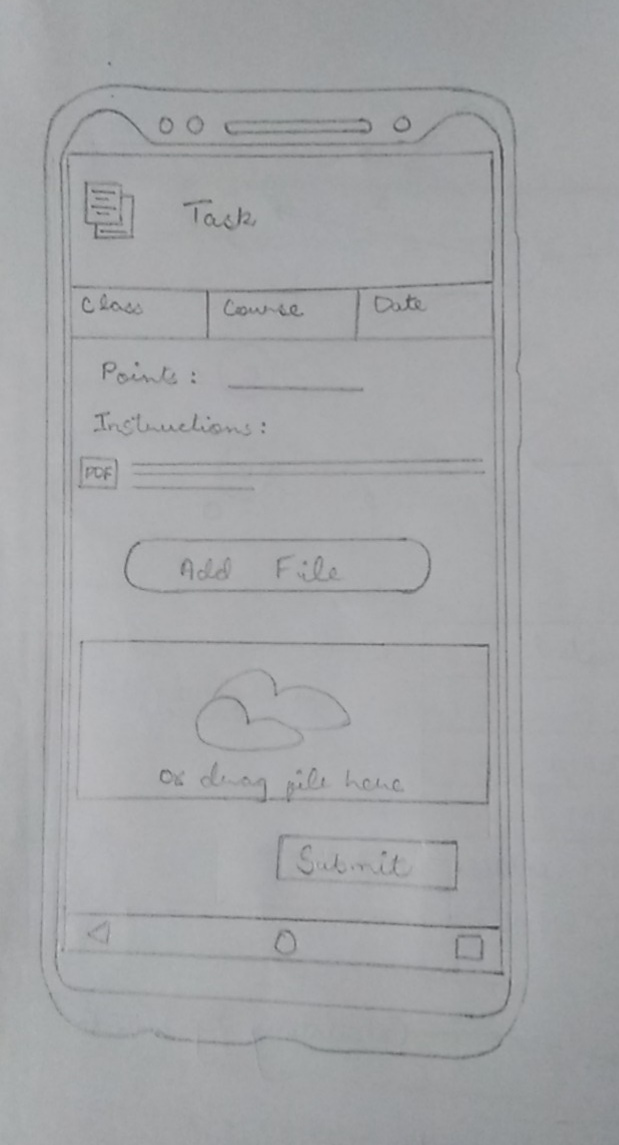 Task
Class Course Date
Points:
Instructions:
PDF
Add File
or drag file here
Submit